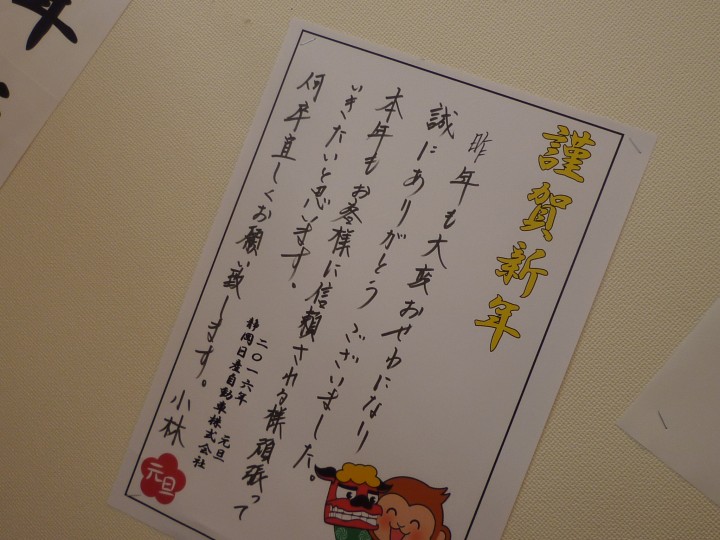 謹賀新年
昨年も大変おせわになり
誠にありがとうございました。
本年もお客様に信頼される様頑張って
いきたいと思います。
何卒宜しくお願い致します。小林
二〇一六年 元旦
静岡日産自動車株式会社
元旦
年